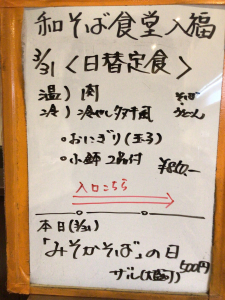 和そば食堂入福
3/31 〈日替定食〉
温) 肉 そば
冷) 冷やしタヌキ風 うどん
・おにぎり(玉子)
・小鉢 2品付 ¥860-
入口こちら
本日(3/31)
「みそかそば」の日
ザル(大盛り) 500円